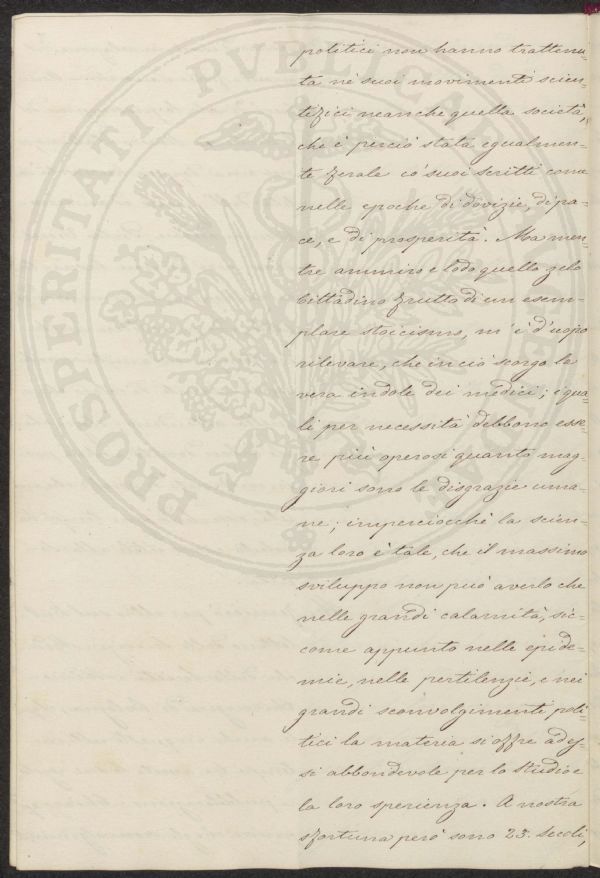 politici non hanno trattenu-
ta nè suoi movimenti scien-
tifici neanche quella società,
che è perciò stata egualmen-
te ferale co' suoi scritti come
nelle epoche di dovizie, di pa-
ce, e di prosperità. Ma men-
tre ammiro e lodo quello zelo
Cittadino frutto di un esem-
plare stoicismo, m'è d'uopo
rilevare, che in ciò scorgo la
vera indole dei medici; i qua-
li per necessità debbono esse-
re più operosi quanto mag-
giori sono le disgrazie uma-
ne; imperciocchè la scien-
za loro è tale, che il massimo
sviluppo non può averlo che
nelle grandi calamità, sic-
come appunto nelle epide-
mie, nelle pestilenzie, e nei
grandi sconvolgimenti poli-
tici la materia si offre ad es-
si abbondevole per lo studio e
la loro sperienza. A nostra
sfortuna però sono 23. secoli,
PROSPERITATI PVBLICAE